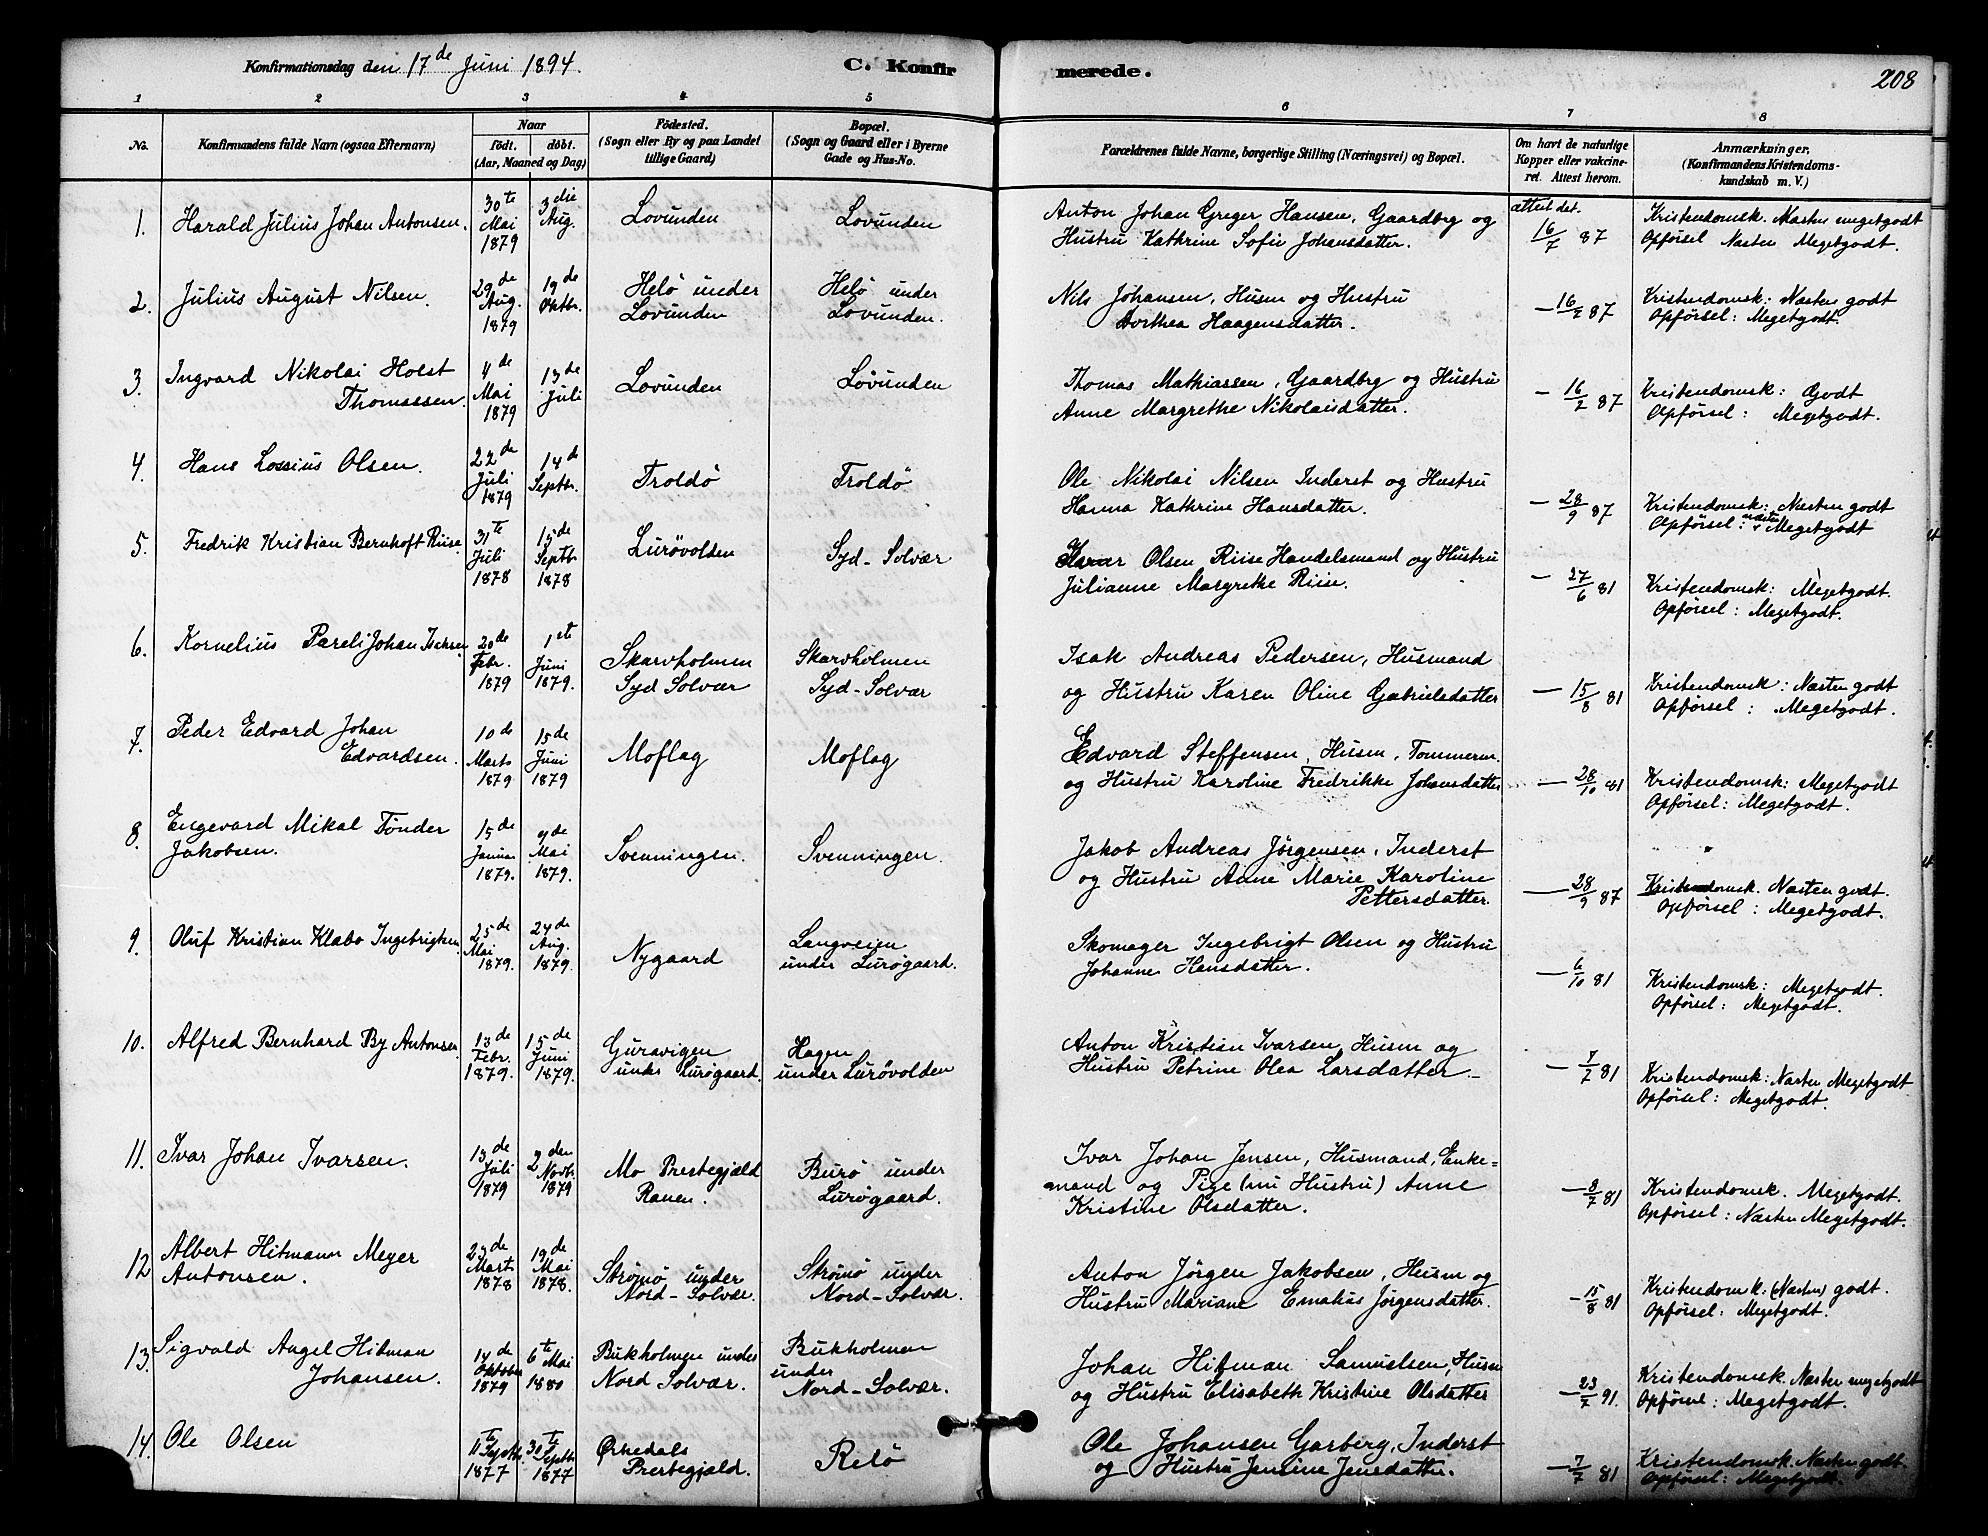 Konfirmationsdag den 17de Juni 1894.
C. Konfirmerede.
208
1 2 3 4 5 6 7 8
No.
Konfirmandens fulde Navn (ogsaa Efternavn)
Naar
født. døbt.
(Aar, Maaned og Dag)
Fødested.
(Sogn eller By og paa Landet
tillige Gaard)
Bopæl.
(Sogn og Gaard eller i Byerne
Gade og Hus-No.
Forældrenes fulde Navne, borgerlige Stilling (Næringsvei) og Bopæl.
Om havt de naturlige
Kopper eller vakcine-
ret. Attest herom.
Anmærkninger,
(Konfirmandens Kristendoms-
kundskab m. V.)
1. Harald Julius Johan Antonsen.
30te Mai 1879
3die Aug.
Lovunden
Lovunden
Anton Johan Greger Hansen, Gaardbrg og
Hustru Kathrine Sofie Johansdatter.
attest det.
16/7 87
Kristendomsk. Næsten megetgodt
Opførsel Næsten Megetgodt.
2. Julius August Nilsen.
29de Aug. 1879
19de Oktbr.
Helö under
Lovunden
Helö under
Lovunden.
Nils Johansen, Husm og Hustru
Dorthea Haagensdatter.
– 16/2 87
Kristendomsk: Næsten godt
Opførsel: Megetgodt.
3. Ingvard Nikolai Holst
Thomassen.
4de Mai 1879
13de Juli
Lovunden
Lovunden
Thomas Mathiassen, Gaardbrg og Hustru
Anne Margrethe Nikolaisdatter.
– 16/2 87
Kristendomsk: Godt
Opførsel: Megetgodt.
4. Hans Lossius Olsen.
22de Juli 1879
14de Septbr.
Troldö
Troldö
Ole Nikolai Nilsen Inderst og Hustru
Hanna Kathrine Hansdatter.
– 28/9 87
Kristendomsk: Næsten godt
Opførsel: næsten Megetgodt
5. Fredrik Kristian Bernhoft Riise
31te Juli 1878
15de Septbr 1878
Lurövolden
Syd-Solvær
Olsen Riise Handelsmand og Hustru
Julianne Margrethe Riise.
– 27/6 81
Kristendomsk: Megetgodt.
Opførsel: Megetgodt.
6. Kornelius Pareli Johan Isaksen
20de Febr. 1879
1ste Juni 1879.
Skarvholmen
Syd Solvær
Skarvholmen
Syd-Solvær
Isak Andreas Pedersen, Husmand
og Hustru Karen Oline Gabrielsdatter
– 15/8 81
Kristendomsk: Næsten godt
Opførsel: Megetgodt.
7. Peder Edvard Johan
Edvardsen.
10de Marts 1879
15de Juni 1879
Moflag
Moflag
Edvard Steffensen, Husm, Tømmerm.
og Hustru Karoline Fredrikke Johansdatter
– 28/10 81
Kristendomsk: Megetgodt
Opførsel: Megetgodt.
8. Engevard Mikal Tönder
Jakobsen.
15de Januar 1879.
4de Mai 1879.
Svenningen.
Svenningen.
Jakob Andreas Jörgensen, Inderst
og Hustru Anne Marie Karoline
Pettersdatter.
– 28/9 87
Kristendomsk. Næsten godt.
Opførsel: Megetgodt.
9. Oluf Kristian Klæbo Ingebrigtsen
25de Mai 1879.
24de Aug. 1879.
Nygaard
Langveien
under Lurögaard.
Skomager Ingebrigt Olsen og Hustru
Johanne Hansdatter.
– 6/10 81
Kristendomsk: Megetgodt.
Opførsel: Megetgodt.
10. Alfred Bernhard By Antonsen
13de Febr. 1879.
15de Juni 1879.
Guravigen
under Lurögaard.
Hagen
under Lurövolden
Anton Kristian Ivarsen, Husm og
Hustru Petrine Olea Larsdatter.
– 7/7 81
Kristendomsk: Næsten Megetgodt
Opførsel: Megetgodt.
11. Ivar Johan Ivarsen.
13de Juli 1879
2den Novbr. 1879
Mo Prestegjæld
Ranen.
Burö under
Lurögaard.
Ivar Johan Jensen, Husmand, Enke=
mand og Pige (nu Hustru) Anne
Kristine Olsdatter.
– 8/7 81
Kristendomsk. Megetgodt.
Opførsel: Næsten Megetgodt.
12 Albert Hitmann Meyer
Antonsen.
Mart 1878
19de Mai 1878.
Strömö under
Nord-Solvær.
Strömö under
Nord-Solvær.
Anton Jörgen Jakobsen, Husm og
Hustru Mariane Ematias Jörgensdatter.
– 15/8 81
Kristendomsk. (Næsten) godt.
Opførsel: Megetgodt.
13. Sigvald Angel Hitman
Johansen.
14de Oktober 1879
6te Mai 1880
Bukholmen under
Nord Solvær.
Bukholmen
under
Nord-Solvær.
Johan Hitman Samuelsen, Husm
og Hustru Elisabeth Kristine Olsdatter
– 23/7 91.
Kristendomsk. Næsten megetgodt
Opførsel: Megetgodt.
14. Ole Olsen
11te Septbr. 1877
30te Septbr 1877
Ørkedals
Prestegjæld.
Relö
Ole Johansen Garberg, Inderst
og Hustru Jensine Jensdatter.
– 7/7 81
Kristendomsk. Næsten godt.
Opførsel: Megetgodt.